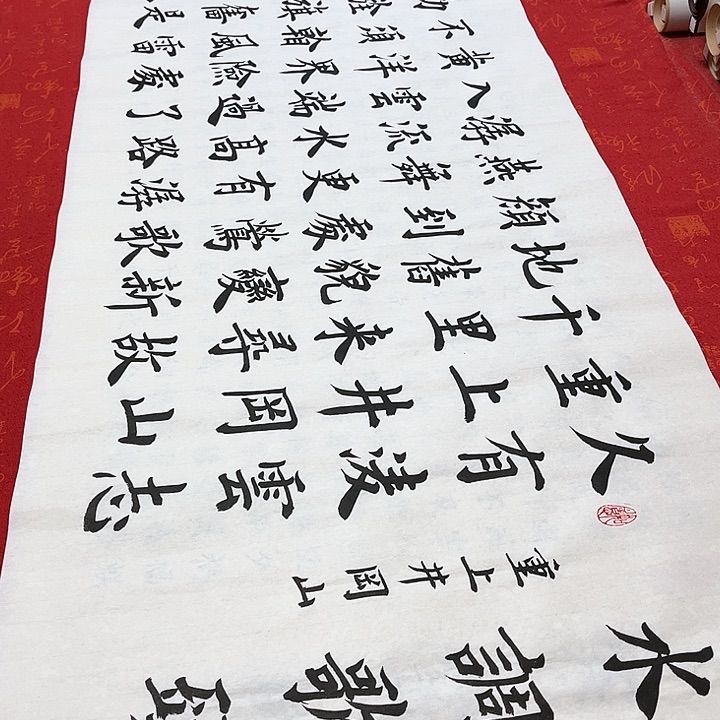 水調歌
重上井岡山
久有凌雲志
重上井岡山
千里來尋故
地舊貌變新
顏到處鶯歌
燕舞更有潺
潺流水高路
入雲端過了
黃洋界險處
不須看風雷
旗奮是